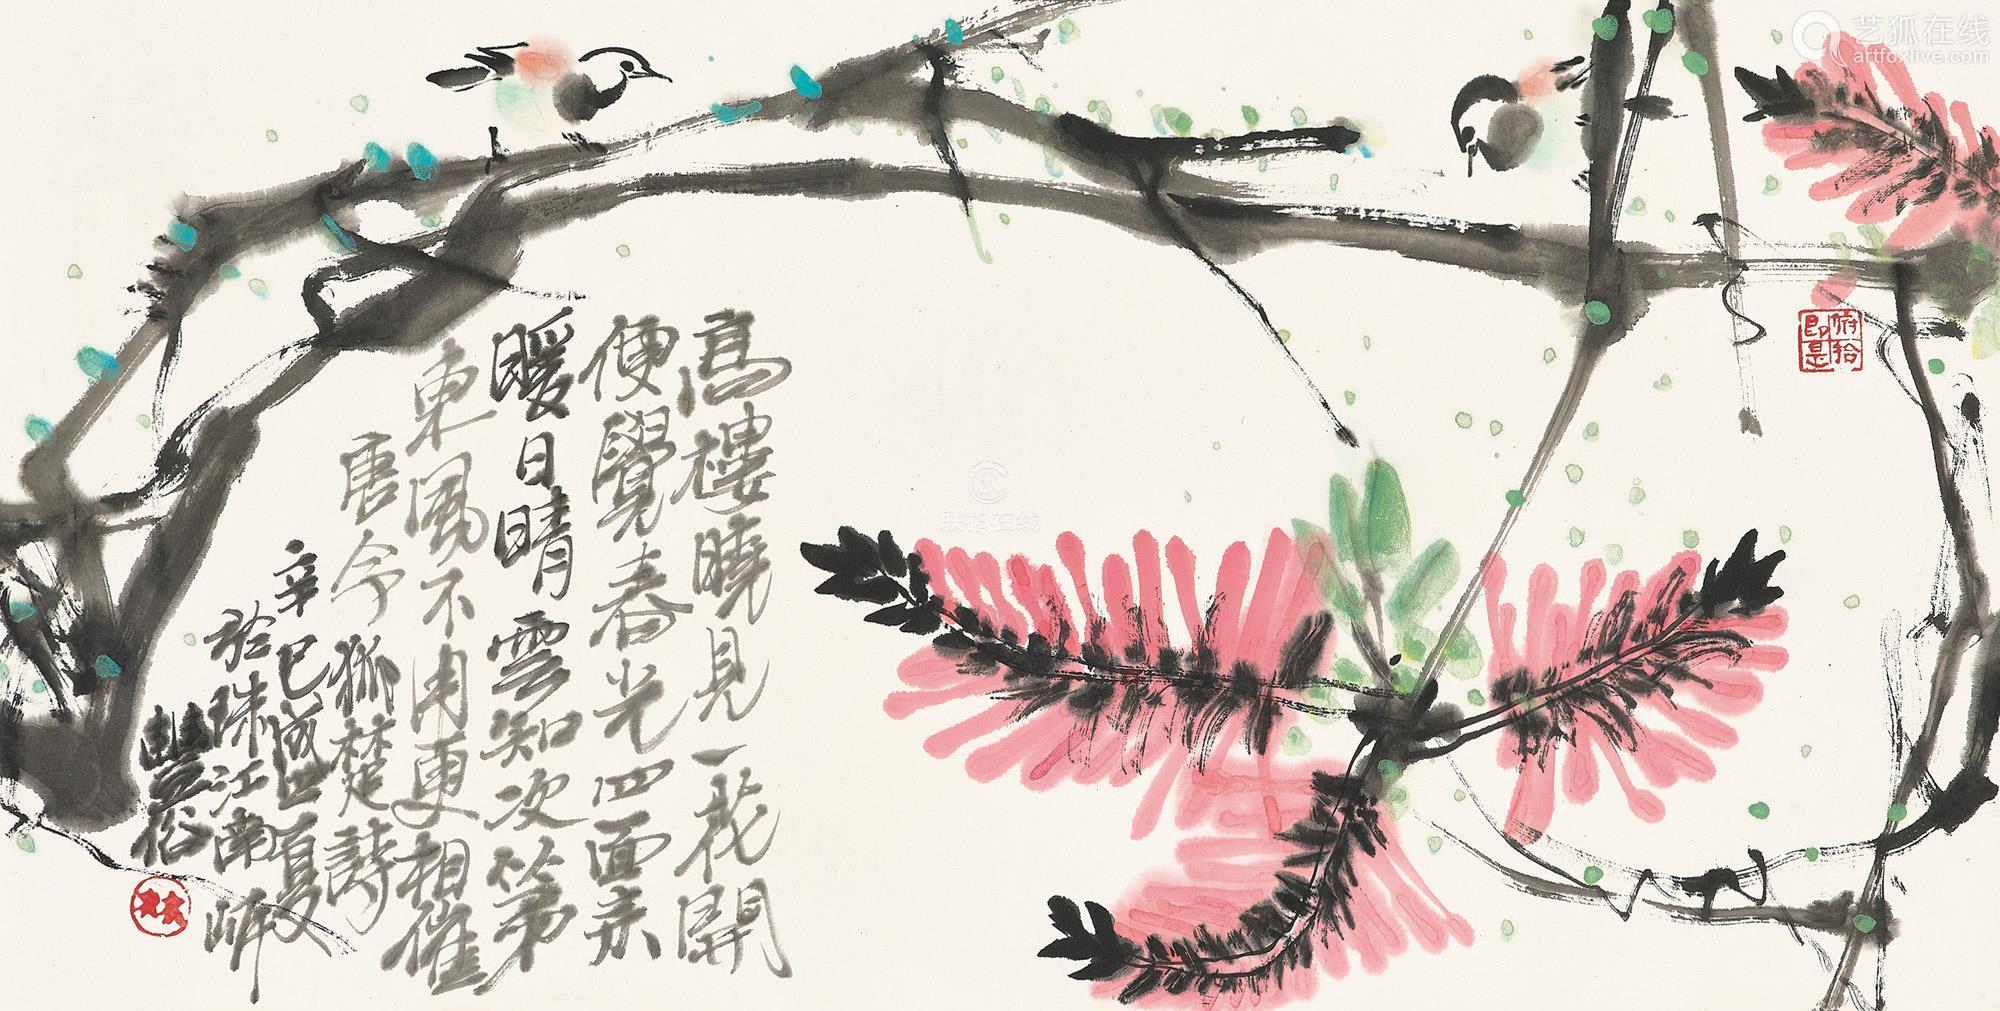 高樓曉見一花開
便覺春光四面來
暖日晴雲知次第
東風不用更相催
唐令狐楚詩
辛巳盛夏
於珠江南岸
豐俗
俯拾即是
林
艺狐在线
artfoxlive.com
联拍在线